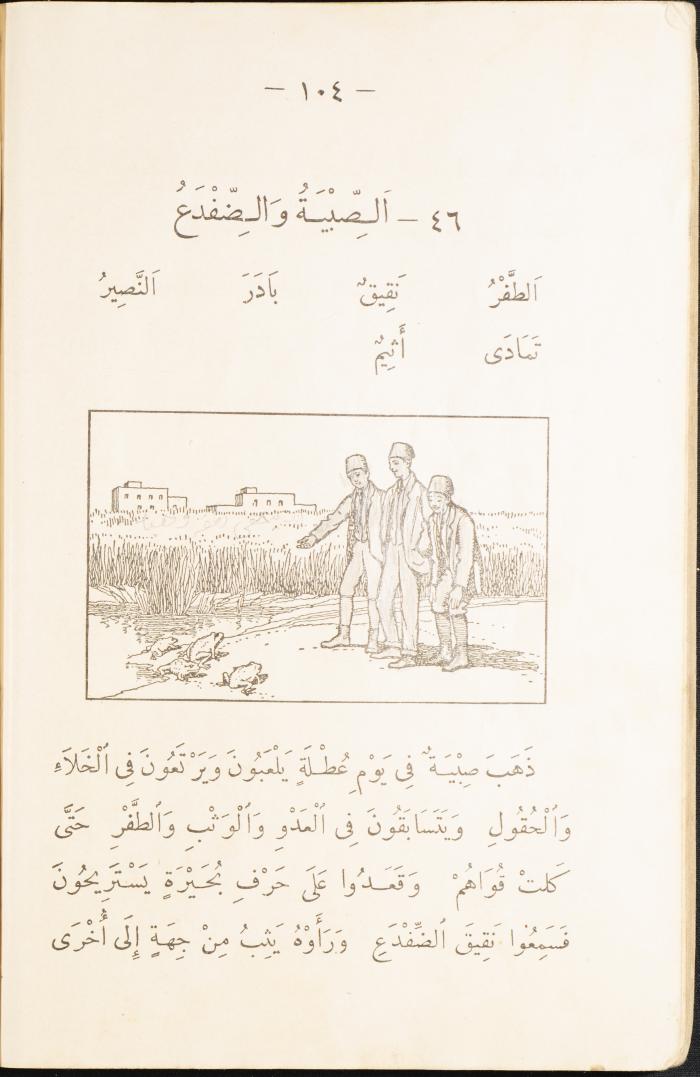 — ١٠٤ —
٤٦ — اَلصِّبْيَةُ وَالضِّفْدَعُ
اَلطَّفْرُ نَقِيقٌ بَادَرَ اَلنَّصِيرُ
تَمَادَى أَثِيمٌ
ذَهَبَ صِبْيَةٌ فِي يَوْمِ عُطْلَةٍ يَلْعَبُونَ وَيَرْتَعُونَ فِي ٱلْخَلَاءِ
وَٱلْحُقُولِ وَيَتَسَابَقُونَ فِي ٱلْعَدْوِ وَٱلْوَثْبِ وَٱلطَّفْرِ حَتَّى
كَلَتْ قُوَاهُمْ وَقَعَدُوا عَلَى حَرْفِ بُحَيْرَةٍ يَسْتَرِيحُونَ
فَسَمِعُوا نَقِيقَ ٱلضِّفْدَعِ وَرَأَوْهُ يَثِبُ مِنْ جِهَةٍ إِلَى أُخْرَى